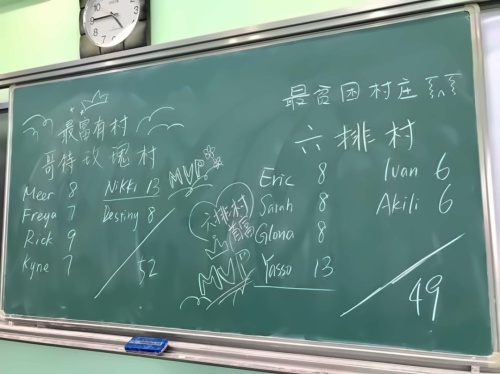 最富有村
哥特玫瑰村
Meer 8
Freya 7
Rick 9
Kyne 7
Nikki 13
Destiny 8
52
MVP
六排村
首富
MVP
最贫困村庄
六排村
Eric 8
Sarah 8
Glona 8
Yasso 13
Ivan 6
Akili 6
49